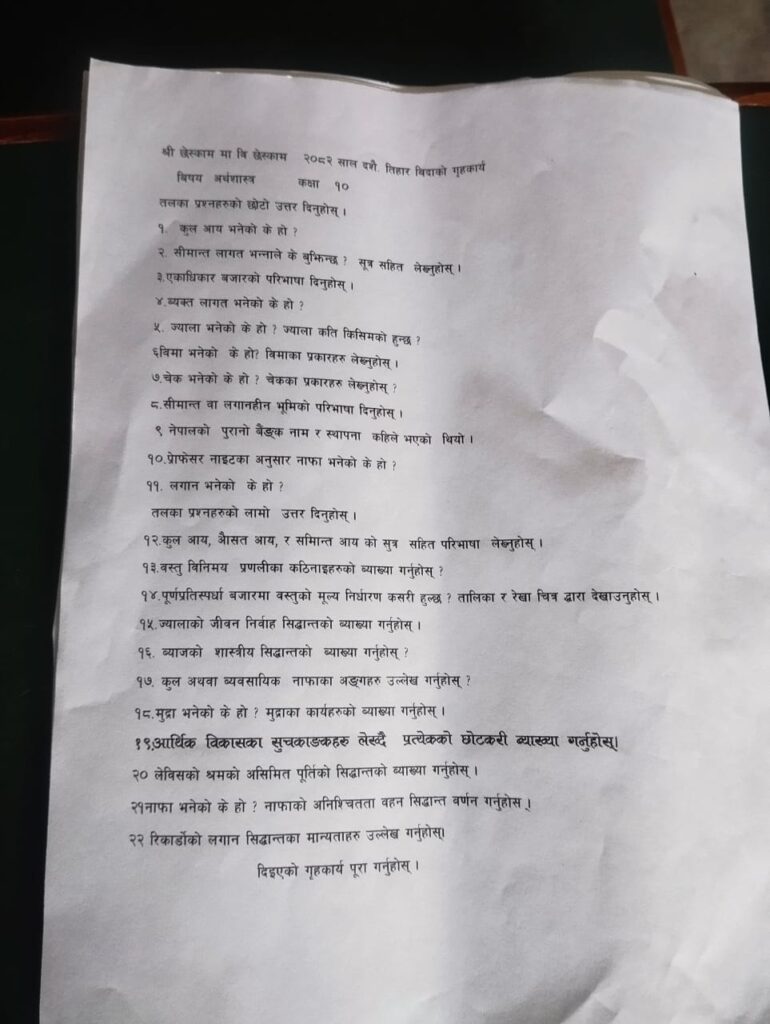 श्री छेस्काम मा वि छेस्काम २०८२ साल दशै. तिहार बिदाको गृहकार्य
बिषय अर्थशास्त्र कक्षा १०
तलका प्रश्नहरुको छोटो उत्तर दिनुहोस् ।
१. कुल आय भनेको के हो ?
२. सीमान्त लागत भन्नाले के बुझिन्छ ? सूत्र सहित लेख्नुहोस् ।
३.एकाधिकार बजारको परिभाषा दिनुहोस् ।
४.ब्यक्त लागत भनेको के हो ?
५. ज्याला भनेको के हो ? ज्याला कति किसिमको हुन्छ ?
६बिमा भनेको के हो? बिमाका प्रकारहरु लेख्नुहोस् ।
७.चेक भनेको के हो ? चेकका प्रकारहरु लेख्नुहोस् ?
८.सीमान्त वा लगानहीन भूमिको परिभाषा दिनुहोस् ।
९ नेपालको पुरानो बैङ्क नाम र स्थापना कहिले भएको थियो ।
१०.प्रोफेसर नाइटका अनुसार नाफा भनेको के हो ?
११. लगान भनेको के हो ?
तलका प्रश्नहरुको लामो उत्तर दिनुहोस् ।
१२.कुल आय, औसत आय, र समिान्त आय को सुत्र सहित परिभाषा लेख्नुहोस् ।
१३.वस्तु विनिमय प्रणलीका कठिनाइहरुको ब्याख्या गर्नुहोस् ?
१४.पूर्णप्रतिस्पर्धा बजारमा वस्तुको मूल्य निर्धारण कसरी हुल्छ ? तालिका र रेखा चित्र द्वारा देखाउनुहोस् ।
१५.ज्यालाको जीवन निर्वाह सिद्धान्तको ब्याख्या गर्नुहोस् ।
१६. ब्याजको शास्त्रीय सिद्धान्तको ब्याख्या गर्नुहोस् ?
१७. कुल अथवा ब्यवसायिक नाफाका अङ्गहरु उल्लेख गर्नुहोस् ?
१८.मुद्रा भनेको के हो ? मुद्राका कार्यहरुको ब्याख्या गर्नुहोस् ।
१९.आर्थिक विकासका सुचकाङकहरु लेख्दै प्रत्येकको छोटकरी ब्याख्या गर्नुहोस्।
२० लेविसको श्रमको असिमित पूर्तिको सिद्धान्तको ब्याख्या गर्नुहोस् ।
२१नाफा भनेको के हो ? नाफाको अनिश्चितता वहन सिद्धान्त वर्णन गर्नुहोस ।
२२ रिकार्डोको लगान सिद्धान्तका मान्यताहरु उल्लेख गर्नुहोस्।
दिइएको गृहकार्य पूरा गर्नुहोस् ।